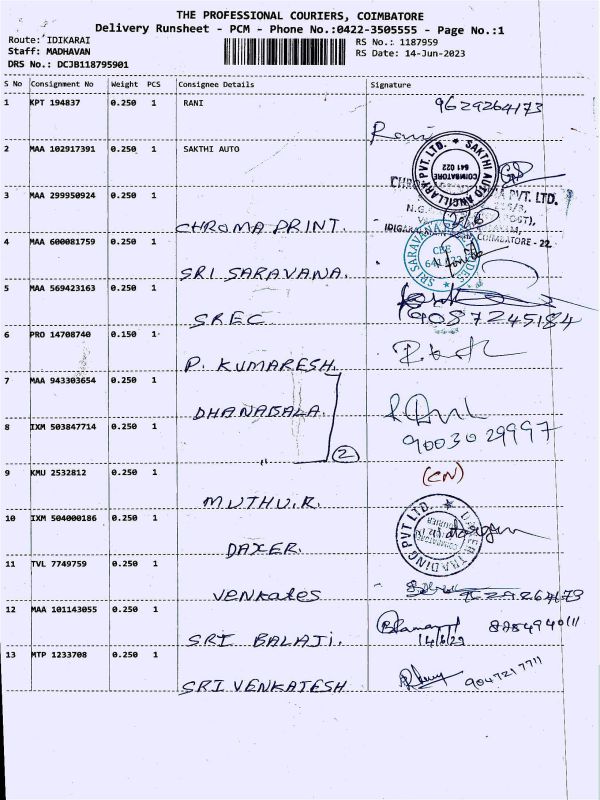 THE PROFESSIONAL COURIERS, COIMBATORE
Delivery Runsheet - PCM - Phone No.:0422-3505555 - Page No.:1
Route: IDIKARAI
RS No.: 1187959
Staff: MADHAVAN
RS Date: 14-Jun-2023
DRS No.: DCJB118795901
S No Consignment No Weight PCS Consignee Details Signature
1 KPT 194837 0.250 1 RANI 9629264173
Rani
2 MAA 102917391 0.250 1 SAKTHI AUTO
SAKTHI AUTO ANCILLARY PVT. LTD. COIMBATORE 641 022
3 MAA 299950924 0.250 1
CHROMA PRINT.
PVT. LTD.
COIMBATORE - 22
4 MAA 600081759 0.250 1
SRI SARAVANA.
SRI SARAVANA
CBE
5 MAA 569423163 0.250 1
SREC
9087245184
6 PRO 14708740 0.150 1
P. KUMARESH.
7 MAA 943303654 0.250 1
DHANABALA.
8 IXM 503847714 0.250 1
9003029997
2
9 KMU 2532812 0.250 1
(CN)
MUTHU.R.
10 IXM 504000186 0.250 1
DAXER.
DAXER TRADING PVT LTD.
11 TVL 7749759 0.250 1
Venkates
12 MAA 101143055 0.250 1
SRI BALAJI.
13 MTP 1233708 0.250 1
SRI VENKATESH
9047217711